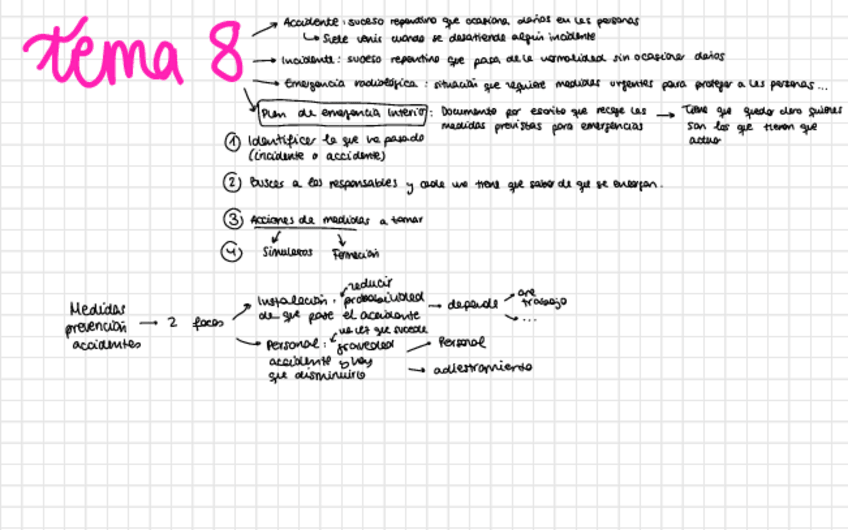 tema 8
Accidente : suceso repentino que ocasiona daños en las personas
Suele venir cuando se desatiende algún incidente
Incidente : suceso repentino que pasa de la normalidad sin ocasionar daños
Emergencia radiológica : situación que requiere medidas urgentes para proteger a las personas ...
Plan de emergencia interior : Documento por escrito que recoge las
medidas previstas para emergencias
Tiene que quedar claro quienes
son los que tienen que
actuar
① Identificar lo que ha pasado
(incidente o accidente)
② Buscar a los responsables y cada uno tiene que saber de que se encargan.
③ Acciones de medidas a tomar
④ Simulacros Formación
Medidas
prevención
accidentes
2 focos
reducir
Instalación : probabilidad
de que pase el accidente
depende
trabajo
...
una vez que sucede
Personal : gravedad
accidente y hay
que disminuirlo
Personal
adiestramiento